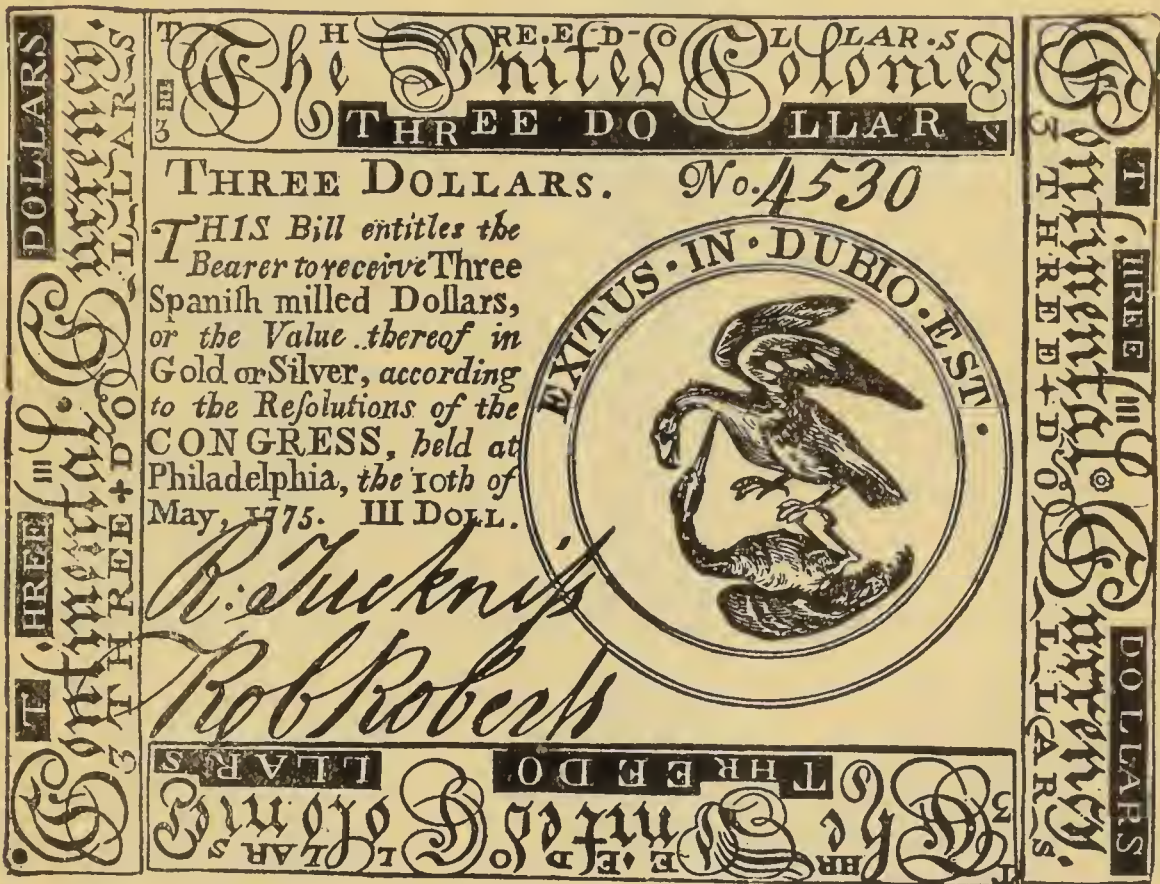 T H REE-D-O L LAR.S
The United Colonies
III
3
THREE DOLLARS
THREE DOLLARS. No. 4530
THIS Bill entitles the
Bearer to receive Three
Spaniſh milled Dollars,
or the Value thereof in
Gold or Silver, according
to the Reſolutions of the
CONGRESS, held at
Philadelphia, the 10th of
May, 1775. III DOLL.
EXITUS·IN·DUBIO·EST·
R: Tuckniſs
Rob Roberts
THREE DOLLARS
Continental · Currency.
3 THREE+DOLLARS
Continental Currency
3 THREE+DOLLARS.
THREE DOLLARS
THREE DOLLARS
The United Colonies